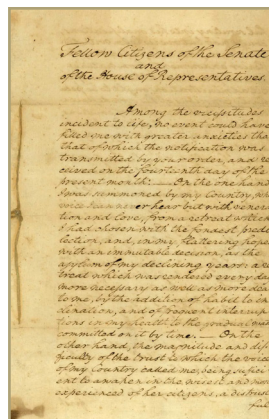 Fellow Citizens of the Senate
and
of the House of Representatives.
Among the vicissitudes
incident to life, no event could have
filled me with greater anxieties than
that of which the notification was
transmitted by your order, and re
ceived on the fourteenth day of the
present month. On the one hand
I was summoned by my Country, wh
voice I can never hear but with venera
tion and love, from a retreat which
I had chosen with the fondest predi
lection, and, in my flattering hopes
with an immutable decision, as the
asylum of my declining years: a re
treat which was rendered every day
more necessary as well as more dear
to me, by the addition of habit to in
clination, and of frequent interrup
tions in my health to the gradual was
committed on it by time. On the
other hand, the magnitude and dif
ficulty of the trust to which the voice
of my Country called me, being suffici
ent to awaken in the wisest and most
experienced of her citizens, a distrust